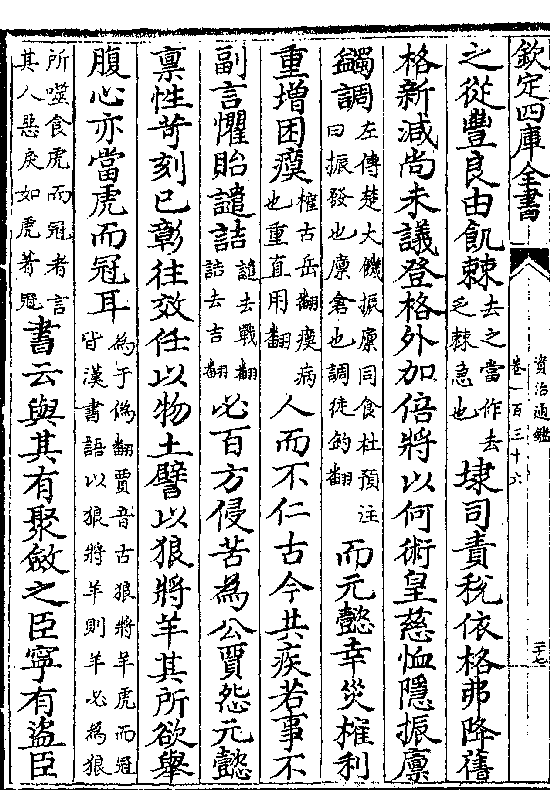 欽定四庫全書
資治通鑑
卷一百三十六
三十七
之從豐良由飢棘去之當作去乏棘急也埭司責稅依格弗降舊
格新減尚未議登格外加倍將以何術皇慈恤隱振廪
蠲調左傳楚大饑振廪同食杜預注曰振發也廪倉也調徒釣翻而元懿幸災榷利
重增困瘼榷古岳翻瘼病也重直用翻人而不仁古今共疾若事不
副言懼貽譴詰譴去戰翻詰去吉翻必百方侵苦為公賈怨元懿
禀性苛刻已彰往效任以物土譬以狼將羊其所欲舉
腹心亦當虎而冠耳為于偽翻賈音古狼將羊虎而冠皆漢書語以狼將羊則羊必為狼
所噬食虎而冠者言其人惡戾如虎著冠書云與其有聚斂之臣寧有盜臣